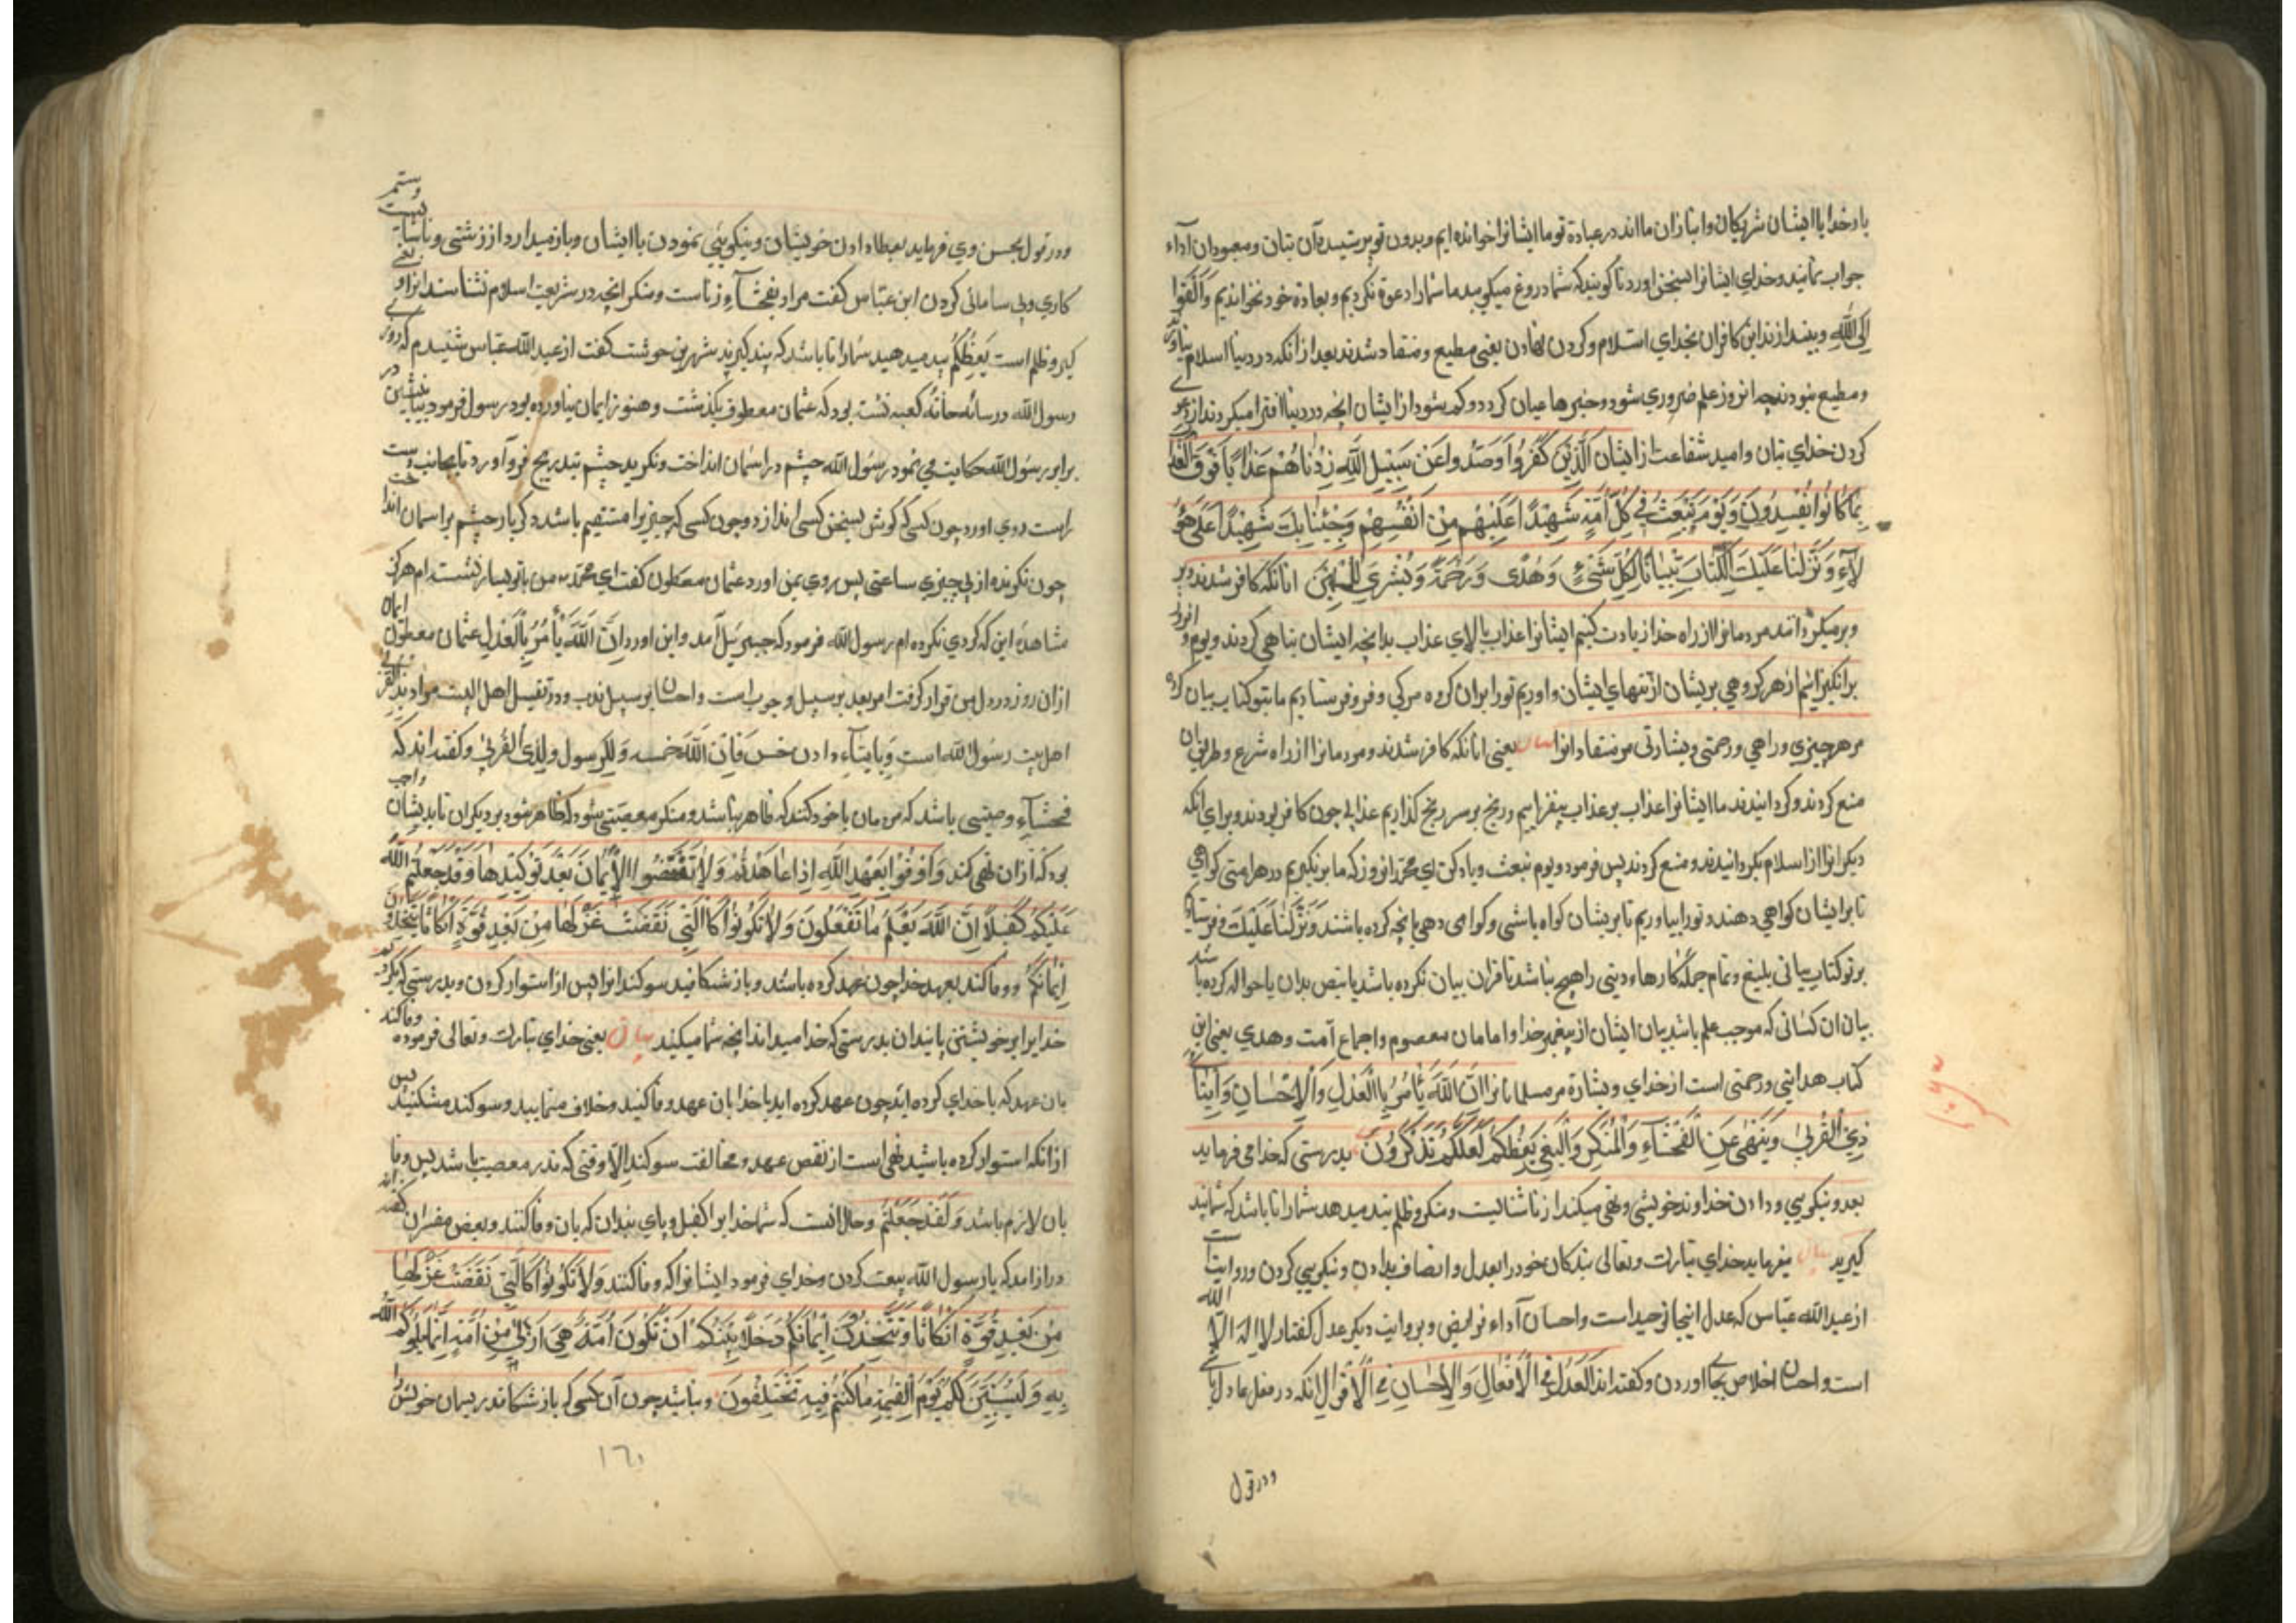 بار خدایا ایشان شریکان و انبازان مااند در عبادة تو ما ایشانرا خوانده ایم و بدون تو پرستیده آن بتان و معبودان آداء
جواب نمایند و خدای ایشانرا بسخن اورد تا گویند که شما دروغ میگویید ما شما را دعوة نکردیم و بعادة خود نخواندیم وَاَلْقَوْا
اِلَی اللّٰهِ و بیندازند این کافران بخدای استلام و کردن نهادن یعنی مطیع و منقاد شدند بعد از انکه در دنیا اسلام
و مطیع نبودند چه انروز علم ضروری شود و خبرها عیان کردد و کم شود از ایشان انچه در دنیا افترا میکردند از
کردن خدای بتان و امید شفاعت از ایشان اَلَّذِیْنَ کَفَرُوْا وَصَدُّوا عَنْ سَبِیْلِ اللّٰهِ زِدْنَاهُمْ عَذَابًا فَوْقَ الْعَذَا
بِمَا کَانُوا یُفْسِدُونَ وَیَوْمَ نَبْعَثُ فِی کُلِّ اُمَّةٍ شَهِیْدًا عَلَیْهِمْ مِنْ اَنْفُسِهِمْ وَجِئْنَا بِکَ شَهِیْدًا عَلَی هٰؤُ
لَآءِ وَنَزَّلْنَا عَلَیْکَ الْکِتَابَ تِبْیَانًا لِکُلِّ شَیْءٍ وَهُدًی وَرَحْمَةً وَبُشْرَی لِلْمُسْلِمِیْنَ انانکه کافر شدند و بر
و برمیکردانند مردمانرا از راه خدا زیادت کنیم ایشانرا عذاب بالای عذاب بدانچه ایشان تباهی کردند و یوم و انروز
برانگیزانیم از هر گروهی بریشان از تنهای ایشان و اوریم تو را بران کروه مرکی و فرو فرستادیم ما بتو کتاب بیان کرده
مر هر چیزی و راهی و رحمتی و بشارتی مر منقادانرا بیان یعنی انانکه کافر شدند و مردمانرا از راه شرع و طریق ان
منع کردند و کردانیدند ما ایشانرا عذاب بر عذاب بیفزاییم و رنج بر سر رنج گذاریم عذابی چون کافر بودند و برای انکه
دیکرانرا از اسلام بکردانیدند و منع کردند پس فرمود و یوم نبعث و یاد کن ای محمد انروز که ما برانگیزیم در هر امتی کواهی
تا بر ایشان کواهی دهند و تو را بیاوریم تا بریشان کواه باشی و کواهی دهی بانچه کرده باشند وَنَزَّلْنَا عَلَیْکَ و فرستادیم
بر تو کتاب بیانی بلیغ و تمام جمله کارها و دینی راهیچ نباشد تا قران بیان نکرده باشد یا بنص بدان یا حواله کرده باشد
بیان ان کسانی که موجب علم باشد بیان ایشان از پیغمبر خدا و امامان معصوم و اجماع آمت و هدی یعنی این
کتاب هدایتی و رحمتی است از خدای و بشارة مر مسلمانانرا اِنَّ اللّٰهَ یَأْمُرُ بِالْعَدْلِ وَالْاِحْسَانِ وَاِیتَاءِ
ذِی الْقُرْبٰی وَیَنْهٰی عَنِ الْفَحْشَاءِ وَالْمُنْکَرِ وَالْبَغْیِ یَعِظُکُمْ لَعَلَّکُمْ تَذَکَّرُوْنَ بدرستی که خدا می فرماید
بعد و نیکویی و دادن خداوند خویشی و نهی میکند از ناشایست و منکر و ظلم پند میدهد شما را تا باشد که شما پند
کیرید بیان میفرماید خدای تبارک و تعالی بندکان خود را بعدل و انصاف بدادن و نیکویی کردن و روایتست
از عبد الله عباس که عدل اینجا توحید است و احسان آداء فرایض و بروایت دیکر عدل گفتار لا اله الا الله
است و احسان اخلاص بجای اوردن و گفته اند اَلْعَدْلُ فِی الْاَفْعَالِ وَالْاِحْسَانِ فِی الْاَقْوَالِ انکه در فعل عادل باشی
و در قول
و در قول بحسن وی فرماید بعطا دادن خویشان و نیکویئی نمودن با ایشان و باز میدارد از زشتی و ناشایست و ستم
کاری و بی سامانی کردن ابن عبّاس گفت مراد بفحشآء زناست و منکر انچه در شریعت اسلام نشناسند انرا و بغی
کبر و ظلم است یَعِظُکُمْ پند میدهد شما را تا باشد که پند کیرید شهر بن حوشت گفت از عبد الله عباس شنیدم که روزی
رسول الله در سائه خانهٔ کعبه نشسته بود که عثمان مظعون بگذشت و هنوز ایمان نیاورده بود رسول فرمود بیا بنشین در
برابر رسول الله حکایت می نمود رسول الله چشم در اسمان انداخت و نکرید چشم بتدریج فرو آورد تا بجانب دست
راست روی اورد چون کسی که گوش بسخن کسی اندازد و چون کسی که چیزیرا مستفهم باشد دکر بار چشم بر اسمان انداخت
چون نکرنده از پی چیزی ساعتی پس روی بمن اورد عثمان مظعون گفت ای محمد من با تو بسیار نشسته ام هرگز
مشاهدهٔ این که کردی نکرده ام رسول الله فرمود که جبرئیل آمد و این اورد اِنَّ اللّٰهَ یَأْمُرُ بِالْعَدْلِ عثمان مظعون ایمان
ازان روز در دل من قرار گرفت امر بعد بر سبیل وجوب است و احسان بر سبیل ندب و در تفسیل اهل البیت مراد بذی القربی
اهل بیت رسول الله است وَبَایتَآءِ دادن خمس فَاِنَّ اللّٰهَ خمسه وَلِلرسول وَلِذِی الْقُرْبٰی و گفته اند که
فحشآء وصیتی باشد که مردمان با خود کنند که ظاهر نباشد و منکر معصیتی بود که ظاهر شود بر دیکران تا بدیشان واجب
بود که ازان نهی کند وَاَوْفُوْا بِعَهْدِ اللّٰهِ اِذَا عَاهَدْتُمْ وَلَا تَنْقُضُوا الْاَیْمَانَ بَعْدَ تَوْکِیْدِهَا وَقَدْ جَعَلْتُمُ اللّٰهَ
عَلَیْکُمْ کَفِیْلًا اِنَّ اللّٰهَ یَعْلَمُ مَا تَفْعَلُونَ وَلَا تَکُوْنُوْا کَالَّتِیْ نَقَضَتْ غَزْلَهَا مِنْ بَعْدِ قُوَّةٍ اَنْکَاثًا تَتَّخِذُوْنَ
اَیْمَانَکُمْ و وفا کنید بعهد خدا چون عهد کرده باشد و باز شکافید سوکند انرا پس از استوار کردن و بدرستی که بکردید
خدایرا بر خویشتن پایندان بدرستی که خدا میداند انچه شما میکنید بیان یعنی خدای تبارک و تعالی فرموده وفا کنید
بان عهد که با خدای کرده اید چون عهد کرده اید با خدا بان عهد وفا کنید و خلاف منمایید و سوکند مشکنید پس
ازانکه استوار کرده باشید نهی است از نقص عهد و مخالفت سوکند الّا وقتی که نذر معصیت باشد پس وفا
بان لازم باشد وَلَقَدْ جَعَلْتُمْ و حال انست که شما خدایرا کفیل و پای بندان که بان وفا کنند و بعضی مفسران گفته اند
در ازا مد که با رسول الله بیعت کردن و خدای فرمود ایشانرا که وفا کنند وَلَا تَکُوْنُوْا کَالَّتِیْ نَقَضَتْ غَزْلَهَا
مِنْ بَعْدِ قُوَّةٍ اَنْکَاثًا وَتَتَّخِذُوْنَ اَیْمَانَکُمْ دَخَلًا بَیْنَکُمْ اَنْ تَکُوْنَ اُمَّةٌ هِیَ اَرْبٰی مِنْ اُمَّةٍ اِنَّمَا یَبْلُوْکُمُ اللّٰهُ
بِهِ وَلَیُبَیِّنَنَّ لَکُمْ یَوْمَ الْقِیٰمَةِ مَا کُنْتُمْ فِیْهِ تَخْتَلِفُوْنَ و نباشید چون آن کسی که باز شکافد ریسمان خویش را
١٦٠